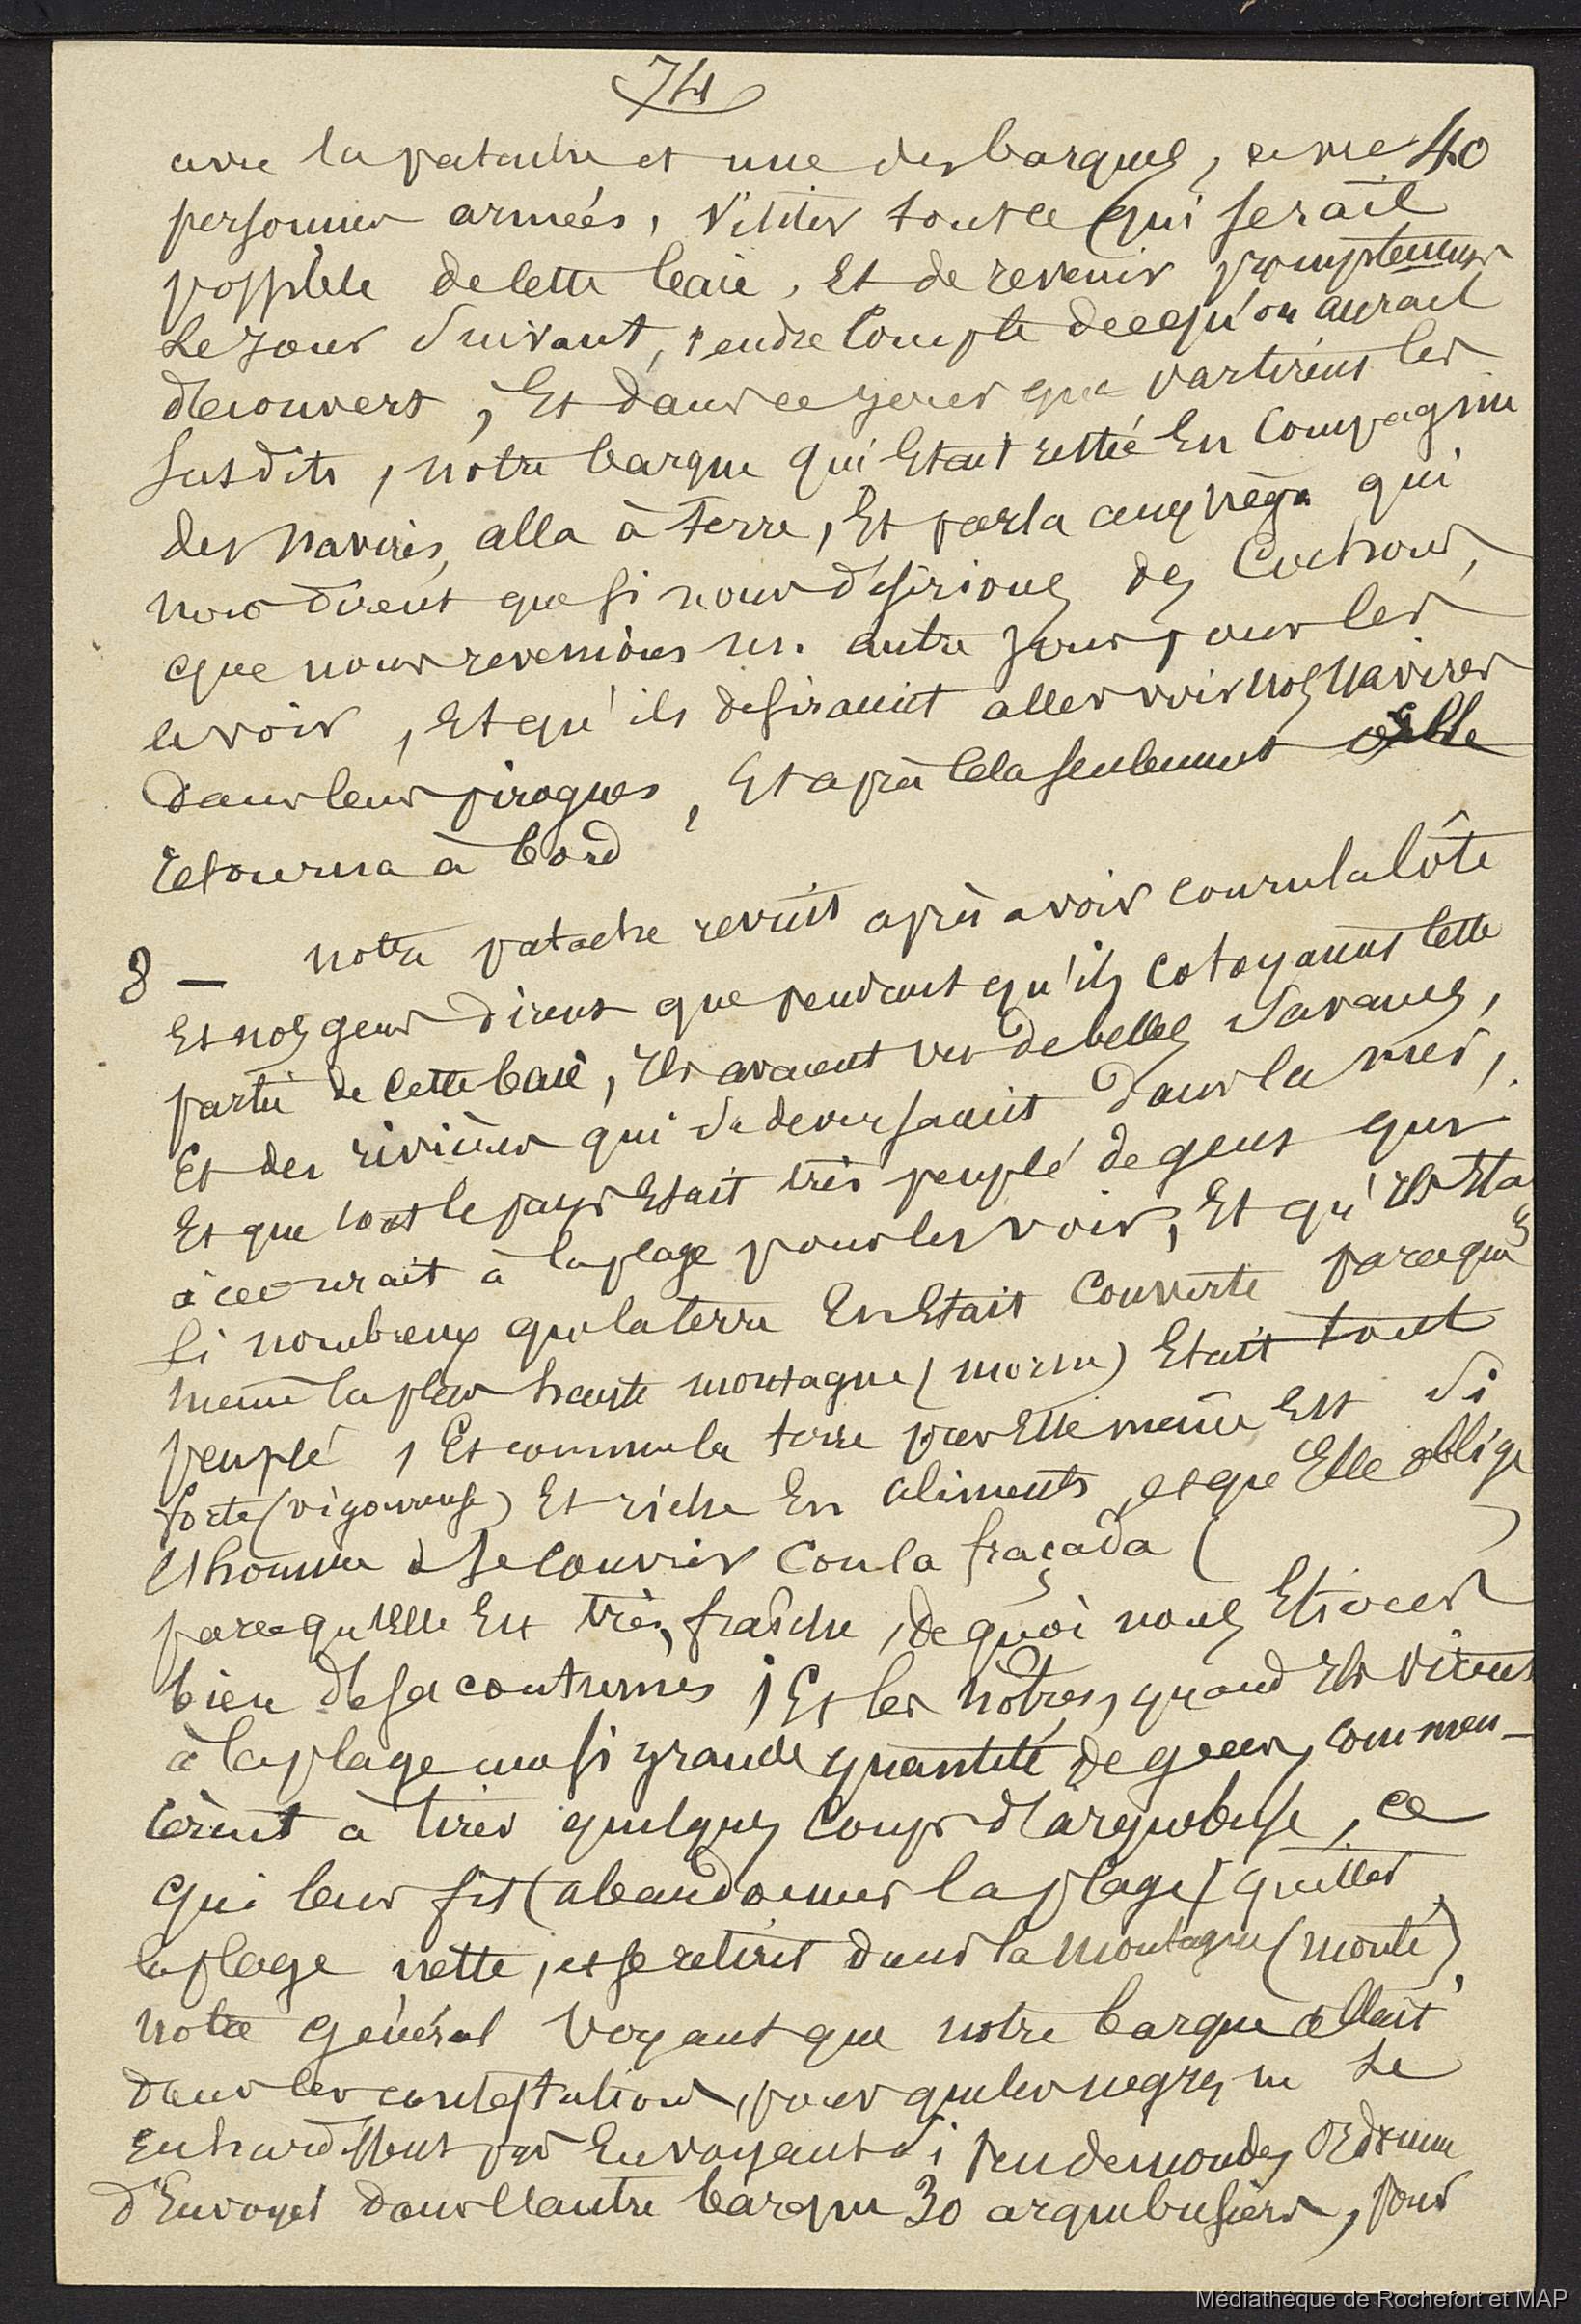 74
avec la patache et une des barques, avec 40
personnes armées, visiter tout ce qui serait
possible de cette baie, Et de revenir promptement
Le jour suivant, rendre compte de ce qu'on aurait
découvert, Et dans ce jour que partirent les
susdits, notre barque qui Etait restée En compagnie
des navires, alla à terre, Et parla aux négr qui
nous dirent que si nous désirions des Cochons,
que nous revenions un autre jour, pour les
avoir, Et qu'ils desiraient aller voir nos navires
dans leurs pirogues, Et après cela seulement elle
retourna à bord
8 — notre patache revint après avoir couru la côte
Et nos gens dirent que pendant qu'ils cotoyaient cette
partie de cette baie, Ils avaient vu de belles Savanes,
Et des rivières qui se deversaient dans la mer,
Et que tout le pays Etait très peuplé de gens qui
accourait à la plage pour les voir, Et qu'ils Eta
si nombreux que la terre En Etait couverte parceque
meme la plus haute montagne (morne) Etait tout
peuplé, Et comme la terre par Elle meme Est si
forte (vigoureuse) Et riche En aliments, et que Elle oblige
l'homme à se couvrir con la fraçada ( )
parcequ'Elle Est très fraîche, de quoi nous Etions
bien désacoutumés, Et les nôtres, quand Ils virent
à la plage une si grande quantité de gens, commen-
cèrent à tirer quelques coups d'arquebuse, ce
qui leur fit (abandonner la plage) quitter
la plage nette, et se retirer dans la montagne (monte),
notre général voyant que notre barque allait
dans les contestations, pour que les negres ne se
enhardissent pas En voyant si peu de monde, ordonne
d'Envoyer dans l'autre barque 30 arquebusiers, pour
Médiathèque de Rochefort et MAP